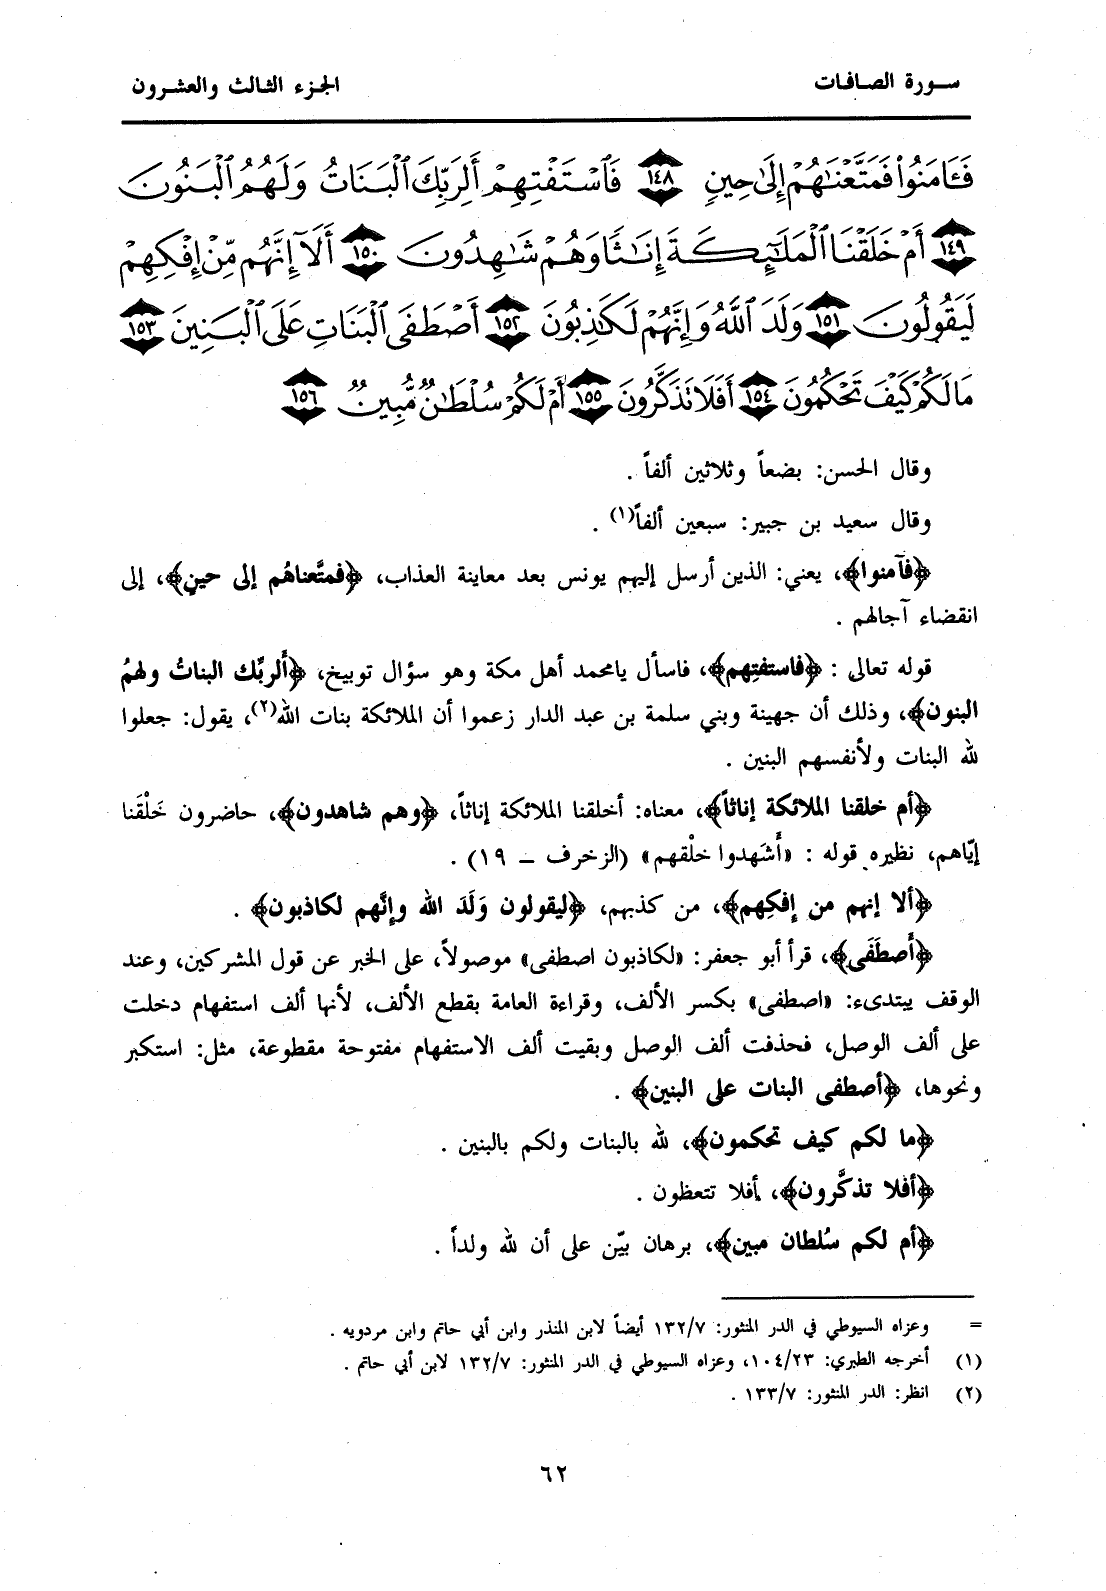 سورة الصافات
الجزء الثالث والعشرون
فَـَٔامَنُوا۟ فَمَتَّعْنَـٰهُمْ إِلَىٰ حِينٍ ١٤٨ فَٱسْتَفْتِهِمْ أَلِرَبِّكَ ٱلْبَنَاتُ وَلَهُمُ ٱلْبَنُونَ
١٤٩ أَمْ خَلَقْنَا ٱلْمَلَـٰٓئِكَةَ إِنَـٰثًا وَهُمْ شَـٰهِدُونَ ١٥٠ أَلَآ إِنَّهُم مِّنْ إِفْكِهِمْ
لَيَقُولُونَ ١٥١ وَلَدَ ٱللَّهُ وَإِنَّهُمْ لَكَـٰذِبُونَ ١٥٢ أَصْطَفَى ٱلْبَنَاتِ عَلَى ٱلْبَنِينَ ١٥٣
مَا لَكُمْ كَيْفَ تَحْكُمُونَ ١٥٤ أَفَلَا تَذَكَّرُونَ ١٥٥ أَمْ لَكُمْ سُلْطَـٰنٌ مُّبِينٌ ١٥٦
وقال الحسن: بضعاً وثلاثين ألفاً .
وقال سعيد بن جبير: سبعين ألفاً(١) .
﴿فآمنوا﴾، يعني: الذين أرسل إليهم يونس بعد معاينة العذاب، ﴿فمتَّعناهُم إلى حينٍ﴾، إلى
انقضاء آجالهم .
قوله تعالى : ﴿فاستفتِهم﴾، فاسأل يامحمد أهل مكة وهو سؤال توبيخ، ﴿أَلربِّك البناتُ ولهمُ
البنون﴾، وذلك أن جهينة وبني سلمة بن عبد الدار زعموا أن الملائكة بنات الله(٢)، يقول: جعلوا
لله البنات ولأنفسهم البنين .
﴿أم خلقنا الملائكة إناثاً﴾، معناه: أخلقنا الملائكة إناثاً، ﴿وهم شاهدون﴾، حاضرون خَلْقَنا
إيّاهم، نظيره قوله : «أَشَهدوا خلْقهم» (الزخرف – ١٩) .
﴿ألا إنهم من إفكِهم﴾، من كذبهم، ﴿ليقولون وَلَدَ الله وإنَّهم لكاذبون﴾ .
﴿أَصطَفَى﴾، قرأ أبو جعفر: «لكاذبون اصطفى» موصولاً، على الخبر عن قول المشركين، وعند
الوقف يبتدىء: «اصطفى» بكسر الألف، وقراءة العامة بقطع الألف، لأنها ألف استفهام دخلت
على ألف الوصل، فحذفت ألف الوصل وبقيت ألف الاستفهام مفتوحة مقطوعة، مثل: استكبر
ونحوها، ﴿أصطفى البنات على البنين﴾ .
﴿ما لكم كيف تحكمون﴾، لله بالبنات ولكم بالبنين .
﴿أفلا تذكَّرون﴾، أفلا تتعظون .
﴿أم لكم سُلطان مبين﴾، برهان بيّن على أن لله ولداً .
= وعزاه السيوطي في الدر المنثور: ١٣٢/٧ أيضاً لابن المنذر وابن أبي حاتم وابن مردويه .
(١) أخرجه الطبري: ١٠٤/٢٣، وعزاه السيوطي في الدر المنثور: ١٣٢/٧ لابن أبي حاتم .
(٢) انظر: الدر المنثور: ١٣٣/٧ .
٦٢